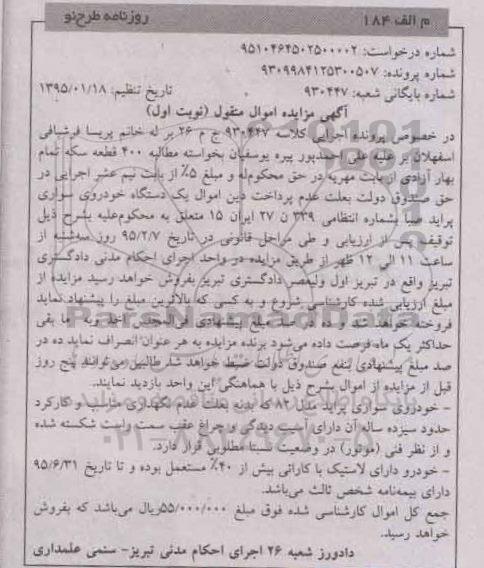 م الف ۱۸۴
روزنامه طرح‌نو
شماره درخواست: ۹۵۱۰۴۶۴۵۰۲۵۰۰۰۰۲
شماره پرونده: ۹۳۰۹۹۸۴۱۲۵۳۰۰۵۰۷
شماره بایگانی شعبه: ۹۳۰۴۴۷
تاریخ تنظیم: ۱۳۹۵/۰۱/۱۸
آگهی مزایده اموال منقول (نوبت اول)
در خصوص پرونده اجرایی کلاسه ۹۳۰۴۴۷ ج م ۲۶ بر له خانم پریسا فرشبافی
اسفهلان بر علیه علی احمدپور پیره یوسفیان بخواسته مطالبه ۴۰۰ قطعه سکه تمام
بهار آزادی از بابت مهریه در حق محکوم‌له و مبلغ ۵٪ از بابت نیم عشر اجرایی در
حق صندوق دولت بعلت عدم پرداخت دین اموال یک دستگاه خودروی سواری
پراید صبا بشماره انتظامی ۳۳۹ ن ۲۷ ایران ۱۵ متعلق به محکوم‌علیه بشرح ذیل
توقیف پس از ارزیابی و طی مراحل قانونی در تاریخ ۹۵/۲/۷ روز سه‌شنبه از
ساعت ۱۱ الی ۱۲ ظهر از طریق مزایده در واحد اجرای احکام مدنی دادگستری
تبریز واقع در تبریز اول ولیعصر دادگستری تبریز بفروش خواهد رسید مزایده از
مبلغ ارزیابی شده کارشناسی شروع و به کسی که بالاترین مبلغ را پیشنهاد نماید
فروخته خواهد شد و ده در صد مبلغ پیشنهادی فی‌المجلس اخذ و به ما بقی
حداکثر یک ماه فرصت داده می‌شود برنده مزایده به هر عنوان انصراف نماید ده در
صد مبلغ پیشنهادی بنفع صندوق دولت ضبط خواهد شد طالبین می‌توانند پنج روز
قبل از مزایده از اموال بشرح ذیل با هماهنگی این واحد بازدید نمایند.
- خودروی سواری پراید مدل ۸۲ که بدنه بعلت عدم نگهداری مناسب و کارکرد
حدود سیزده ساله آن دارای آسیب دیدگی و چراغ عقب سمت راست شکسته شده
و از نظر فنی (موتور) در وضعیت نسبتا مطلوبی قرار دارد.
- خودرو دارای لاستیک با کارائی بیش از ۴۰٪ مستعمل بوده و تا تاریخ ۹۵/۶/۳۱
دارای بیمه‌نامه شخص ثالث می‌باشد.
جمع کل اموال کارشناسی شده فوق مبلغ ۵۵/۰۰۰/۰۰۰ریال می‌باشد که بفروش
خواهد رسید.
دادورز شعبه ۲۶ اجرای احکام مدنی تبریز- سنمی علمداری
ParsNamadData
۰۲۱-۸۸۳۴۹۶۷۰-۵